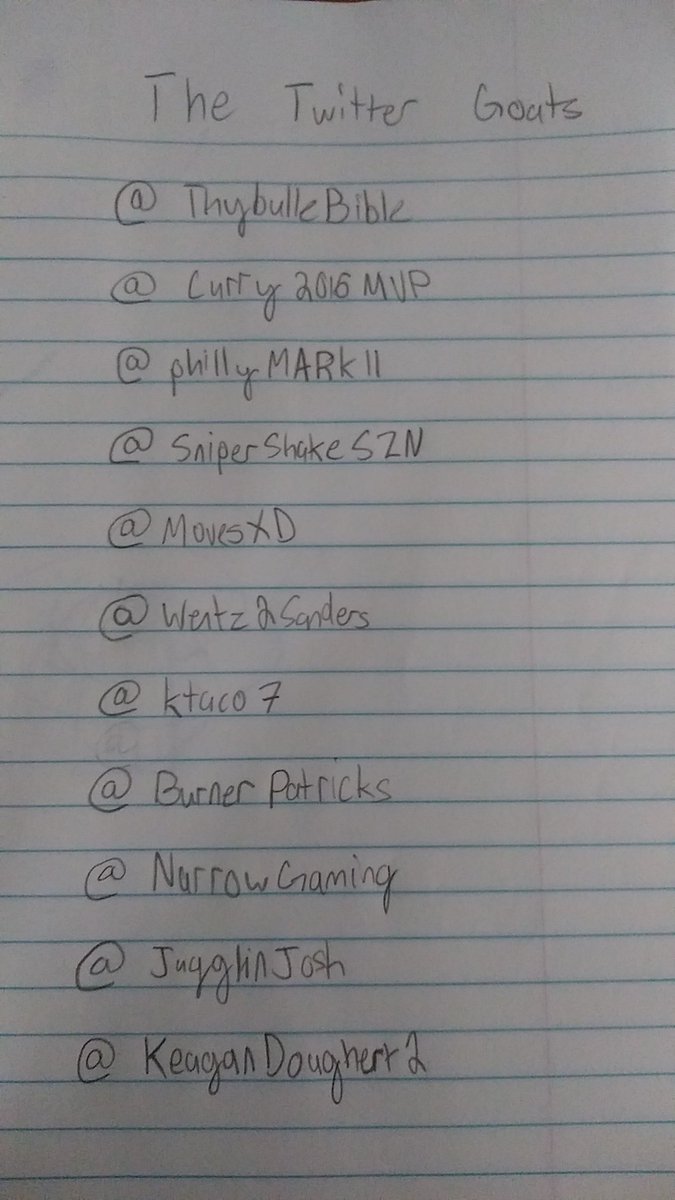 The Twitter Goats
@ThybulleBible
@Curry2016MVP
@phillyMARK11
@SniperShakeSZN
@MovesXD
@Wentz2Sanders
@ktaco7
@BurnerPatricks
@NarrowGaming
@JugglinJosh
@KeaganDougherr2